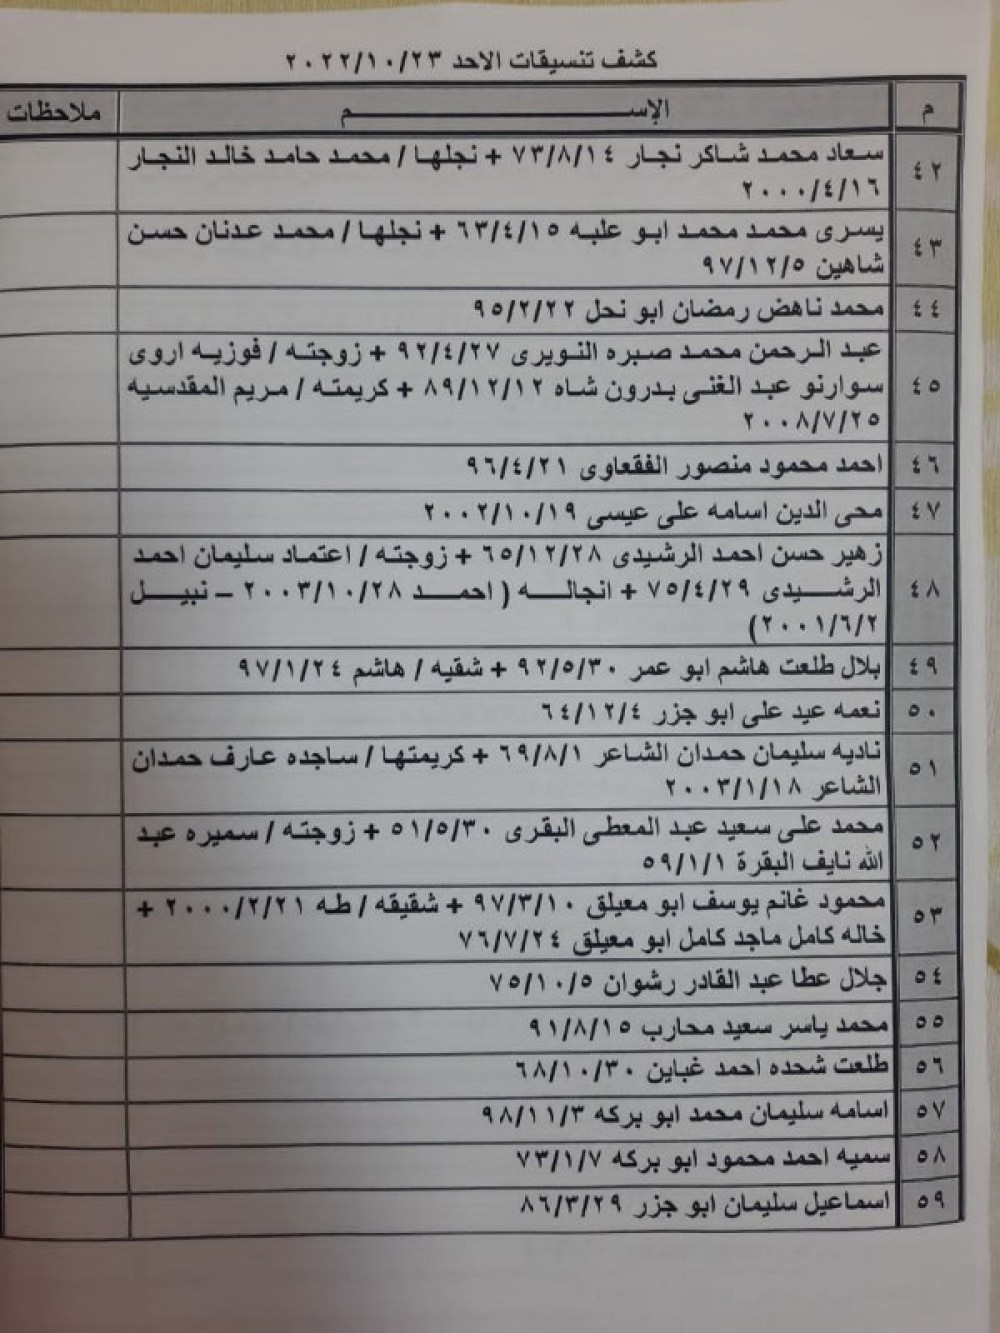 كشف تنسيقات الاحد ٢٠٢٢/١٠/٢٣
م الإســـــم ملاحظات
٤٢ سعاد محمد شاكر نجار ٧٣/٨/١٤ + نجلها / محمد حامد خالد النجار
٢٠٠٠/٤/١٦
٤٣ يسرى محمد محمد ابو علبه ٦٣/٤/١٥ + نجلها / محمد عدنان حسن
شاهين ٩٧/١٢/٥
٤٤ محمد ناهض رمضان ابو نحل ٩٥/٢/٢٢
٤٥ عبد الرحمن محمد صبره النويرى ٩٢/٤/٢٧ + زوجته / فوزيه اروى
سوارنو عبد الغنى بدرون شاه ٨٩/١٢/١٢ + كريمته / مريم المقدسيه
٢٠٠٨/٧/٢٥
٤٦ احمد محمود منصور الفقعاوى ٩٦/٤/٢١
٤٧ محى الدين اسامه على عيسى ٢٠٠٢/١٠/١٩
٤٨ زهير حسن احمد الرشيدى ٦٥/١٢/٢٨ + زوجته / اعتماد سليمان احمد
الرشيدى ٧٥/٤/٢٩ + انجاله ( احمد ٢٠٠٣/١٠/٢٨ – نبيل
٢٠٠١/٦/٢)
٤٩ بلال طلعت هاشم ابو عمر ٩٢/٥/٣٠ + شقيه / هاشم ٩٧/١/٢٤
٥٠ نعمه عيد على ابو جزر ٦٤/١٢/٤
٥١ ناديه سليمان حمدان الشاعر ٦٩/٨/١ + كريمتها / ساجده عارف حمدان
الشاعر ٢٠٠٣/١/١٨
٥٢ محمد على سعيد عبد المعطى البقرى ٥١/٥/٣٠ + زوجته / سميره عبد
الله نايف البقرة ٥٩/١/١
٥٣ محمود غانم يوسف ابو معيلق ٩٧/٣/١٠ + شقيقه / طه ٢٠٠٠/٢/٢١ +
خاله كامل ماجد كامل ابو معيلق ٧٦/٧/٢٤
٥٤ جلال عطا عبد القادر رشوان ٧٥/١٠/٥
٥٥ محمد ياسر سعيد محارب ٩١/٨/١٥
٥٦ طلعت شحده احمد غباين ٦٨/١٠/٣٠
٥٧ اسامه سليمان محمد ابو بركه ٩٨/١١/٣
٥٨ سميه احمد محمود ابو بركه ٧٣/١/٧
٥٩ اسماعيل سليمان ابو جزر ٨٦/٣/٢٩